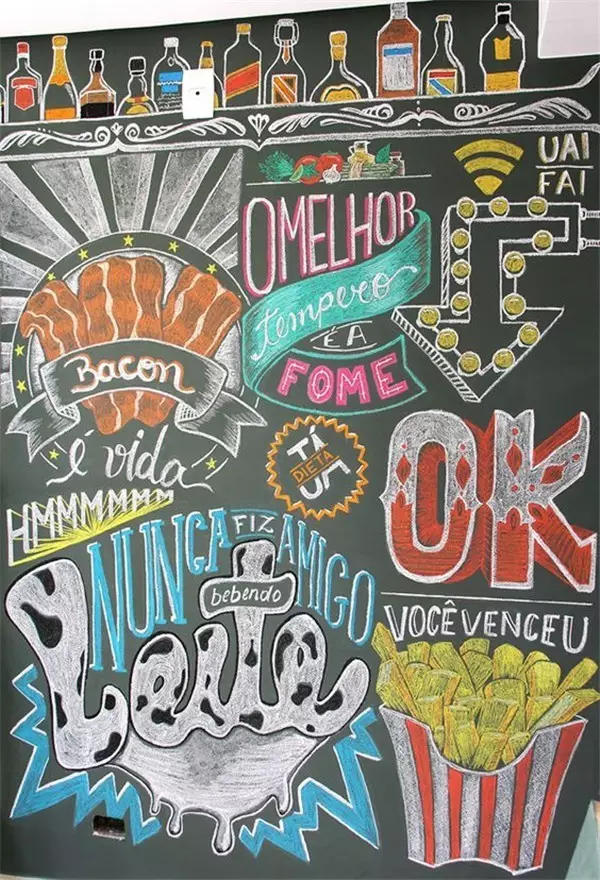 UAI
FAI
O MELHOR
tempero
É A
FOME
Bacon
é vida
HMMMMMMM
TÁ
DIETA
UA
OK
VOCÊ VENCEU
NUNCA FIZ AMIGO
bebendo
Leite